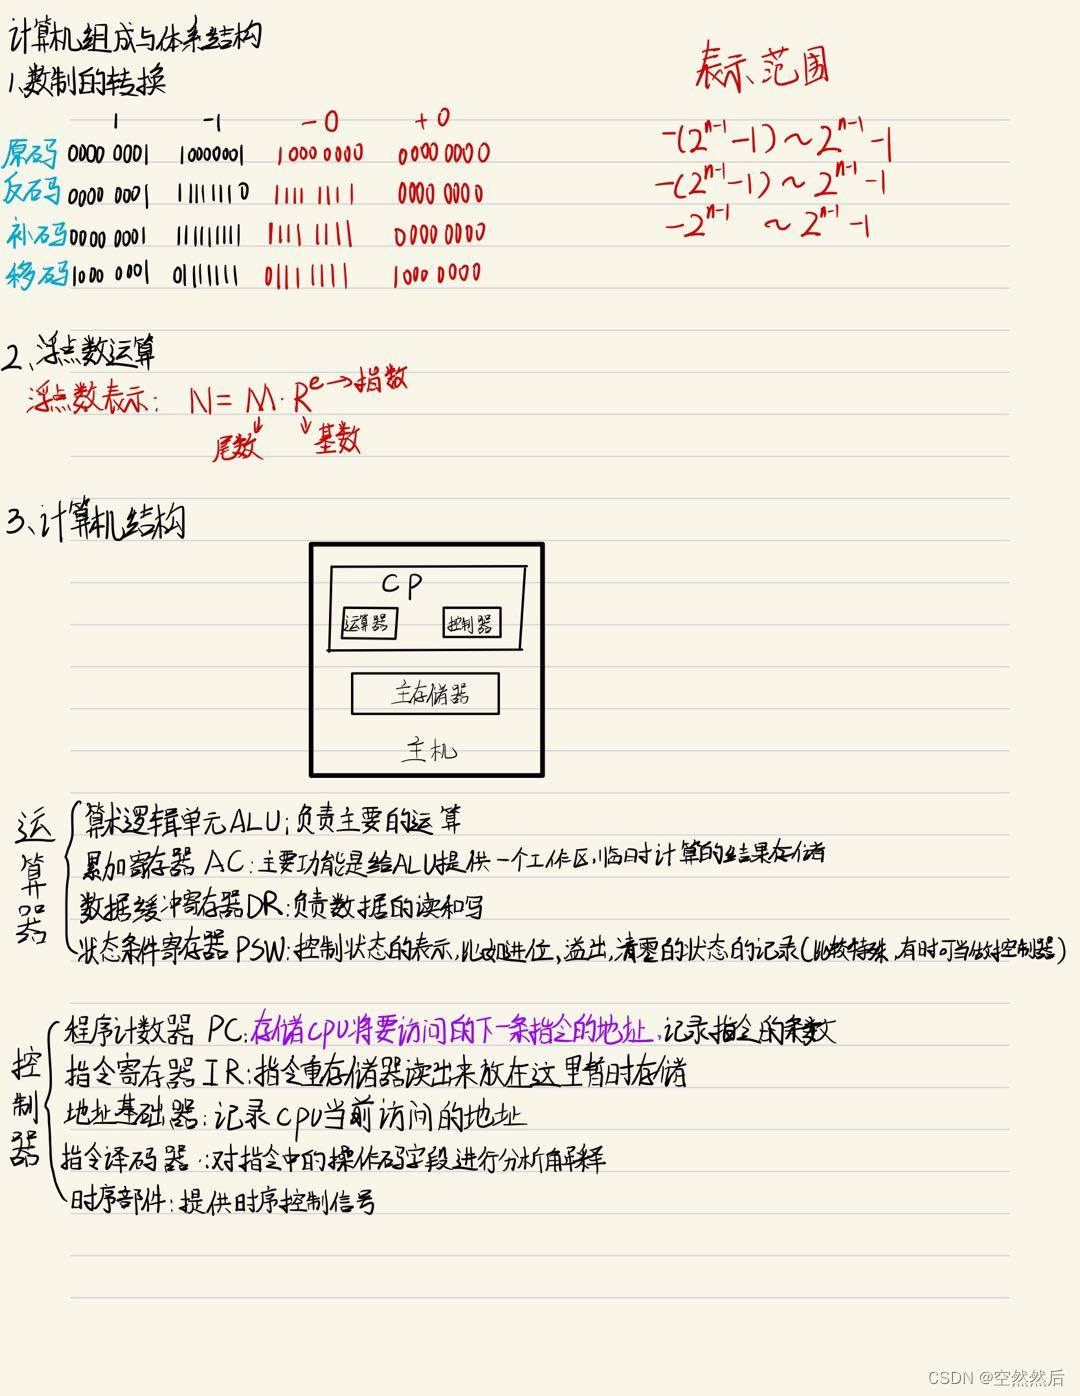 计算机组成与体系结构
表示范围
1、数制的转换
1 -1 -0 +0
原码 0000 0001 10000001 1000 0000 0000 0000 -(2^{n-1}-1) ~ 2^{n-1}-1
反码 0000 0001 11111110 1111 1111 0000 0000 -(2^{n-1}-1) ~ 2^{n-1}-1
补码 0000 0001 11111111 1111 1111 0000 0000 -2^{n-1} ~ 2^{n-1}-1
移码 1000 0001 01111111 0111 1111 1000 0000
2、浮点数运算
浮点数表示: N = M·R^e → 指数
尾数 基数
3、计算机结构
CP
运算器 控制器
主存储器
主机
运算器
算术逻辑单元ALU:负责主要的运算
累加寄存器 AC:主要功能是给ALU提供一个工作区,临时计算的结果存储
数据缓冲寄存器DR:负责数据的读和写
状态条件寄存器 PSW:控制状态的表示,比如进位、溢出,清零的状态的记录(比较特殊,有时可当做控制器)
控制器
程序计数器 PC:存储CPU将要访问的下一条指令的地址,记录指令的条数
指令寄存器 IR:指令重存储器读出来放在这里暂时存储
地址基础器:记录CPU当前访问的地址
指令译码器::对指令中的操作码字段进行分析解释
时序部件:提供时序控制信号
CSDN @空然然后